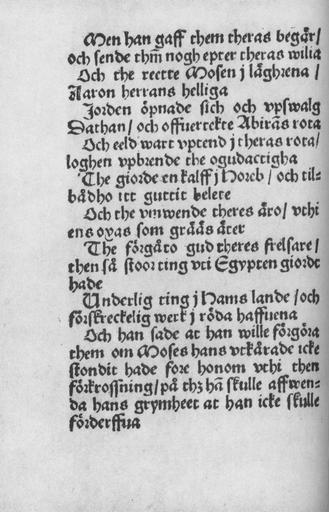 Men han gaff them theras begär/
och sende thm̄ nogh epter theras wilia
Och the reette Mosen j läghrena/
Aaron herrans helliga
Jorden öpnade sich och vpswalg
Dathan/ och offuertekte Abirās rota
Och eeld wart vptend j theras rota/
loghen vpbrende the ogudactigha
The giorde en kalff j Horeb/ och til-
bådho itt guttit belete
Och the vmwende theres äro/ vthi
ens oxas som gräās äter
The förgäto gud theres frelsare/
then så stoor ting vti Egypten giordt
hade
Underlig ting j Hams lande/ och
förskreckelig werk j röda haffuena
Och han sade at han wille förgöra
them om Moses hans vtkårade icke
stondit hade fore honom vthi then
förkrossning/ på thz hā skulle affwen-
da hans grymheet at han icke skulle
förderffua